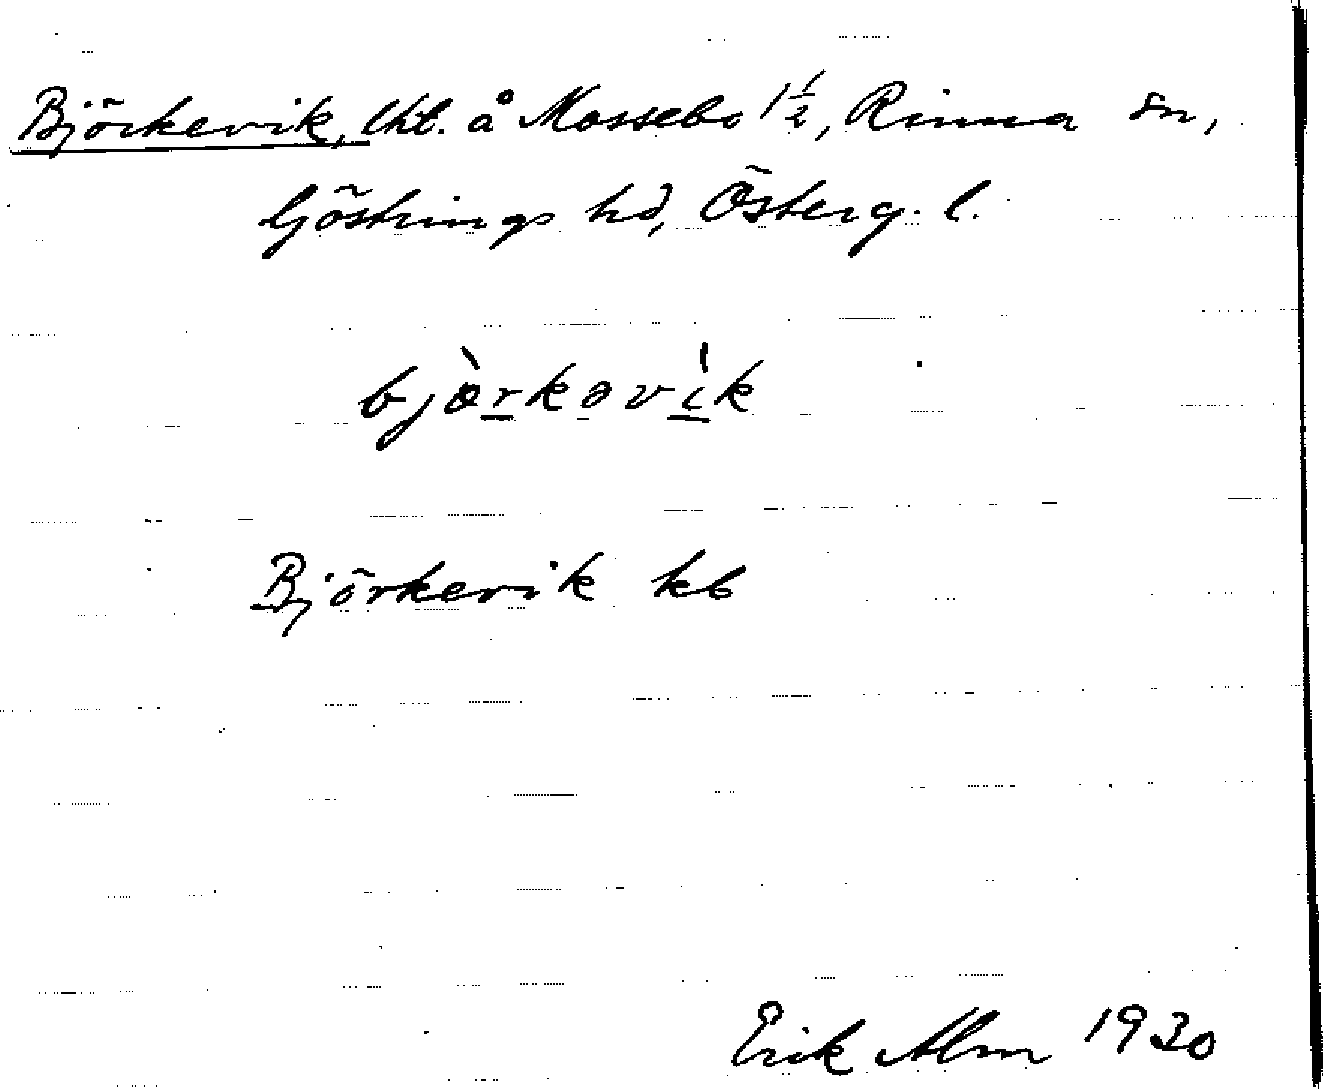 Björkevik, lht. å Mossebo 1½, Rinna sn,
Göstrings hd, Österg. l.
bjòrkəvìk
Björkevik kb
Erik Alm 1930